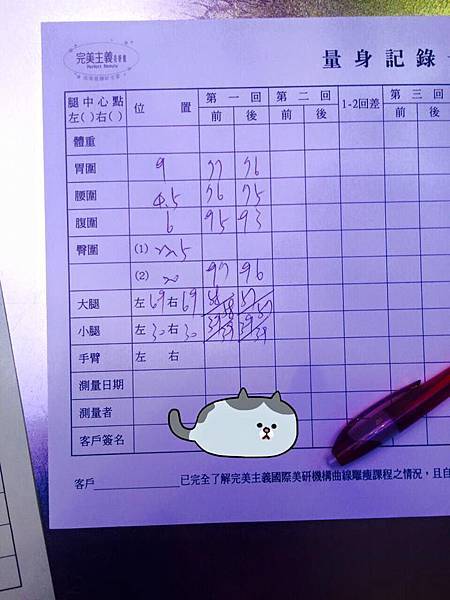 完美主義美學館
Perfect Beauty
量身記錄
腿中心點 位置 第一回 第二回 1-2回差 第三回
左( )右( ) 前 後 前 後 前 後
體重
胃圍 9 77 76
腰圍 4.5 76 75
腹圍 6 95 93
臀圍 (1) 22.5
(2) 20 97 96
大腿 左69 右69
小腿 左30 右30 39/39 39/39
手臂 左 右
測量日期
測量者
客戶簽名
客戶 已完全了解完美主義國際美研機構曲線雕瘦課程之情況，且自